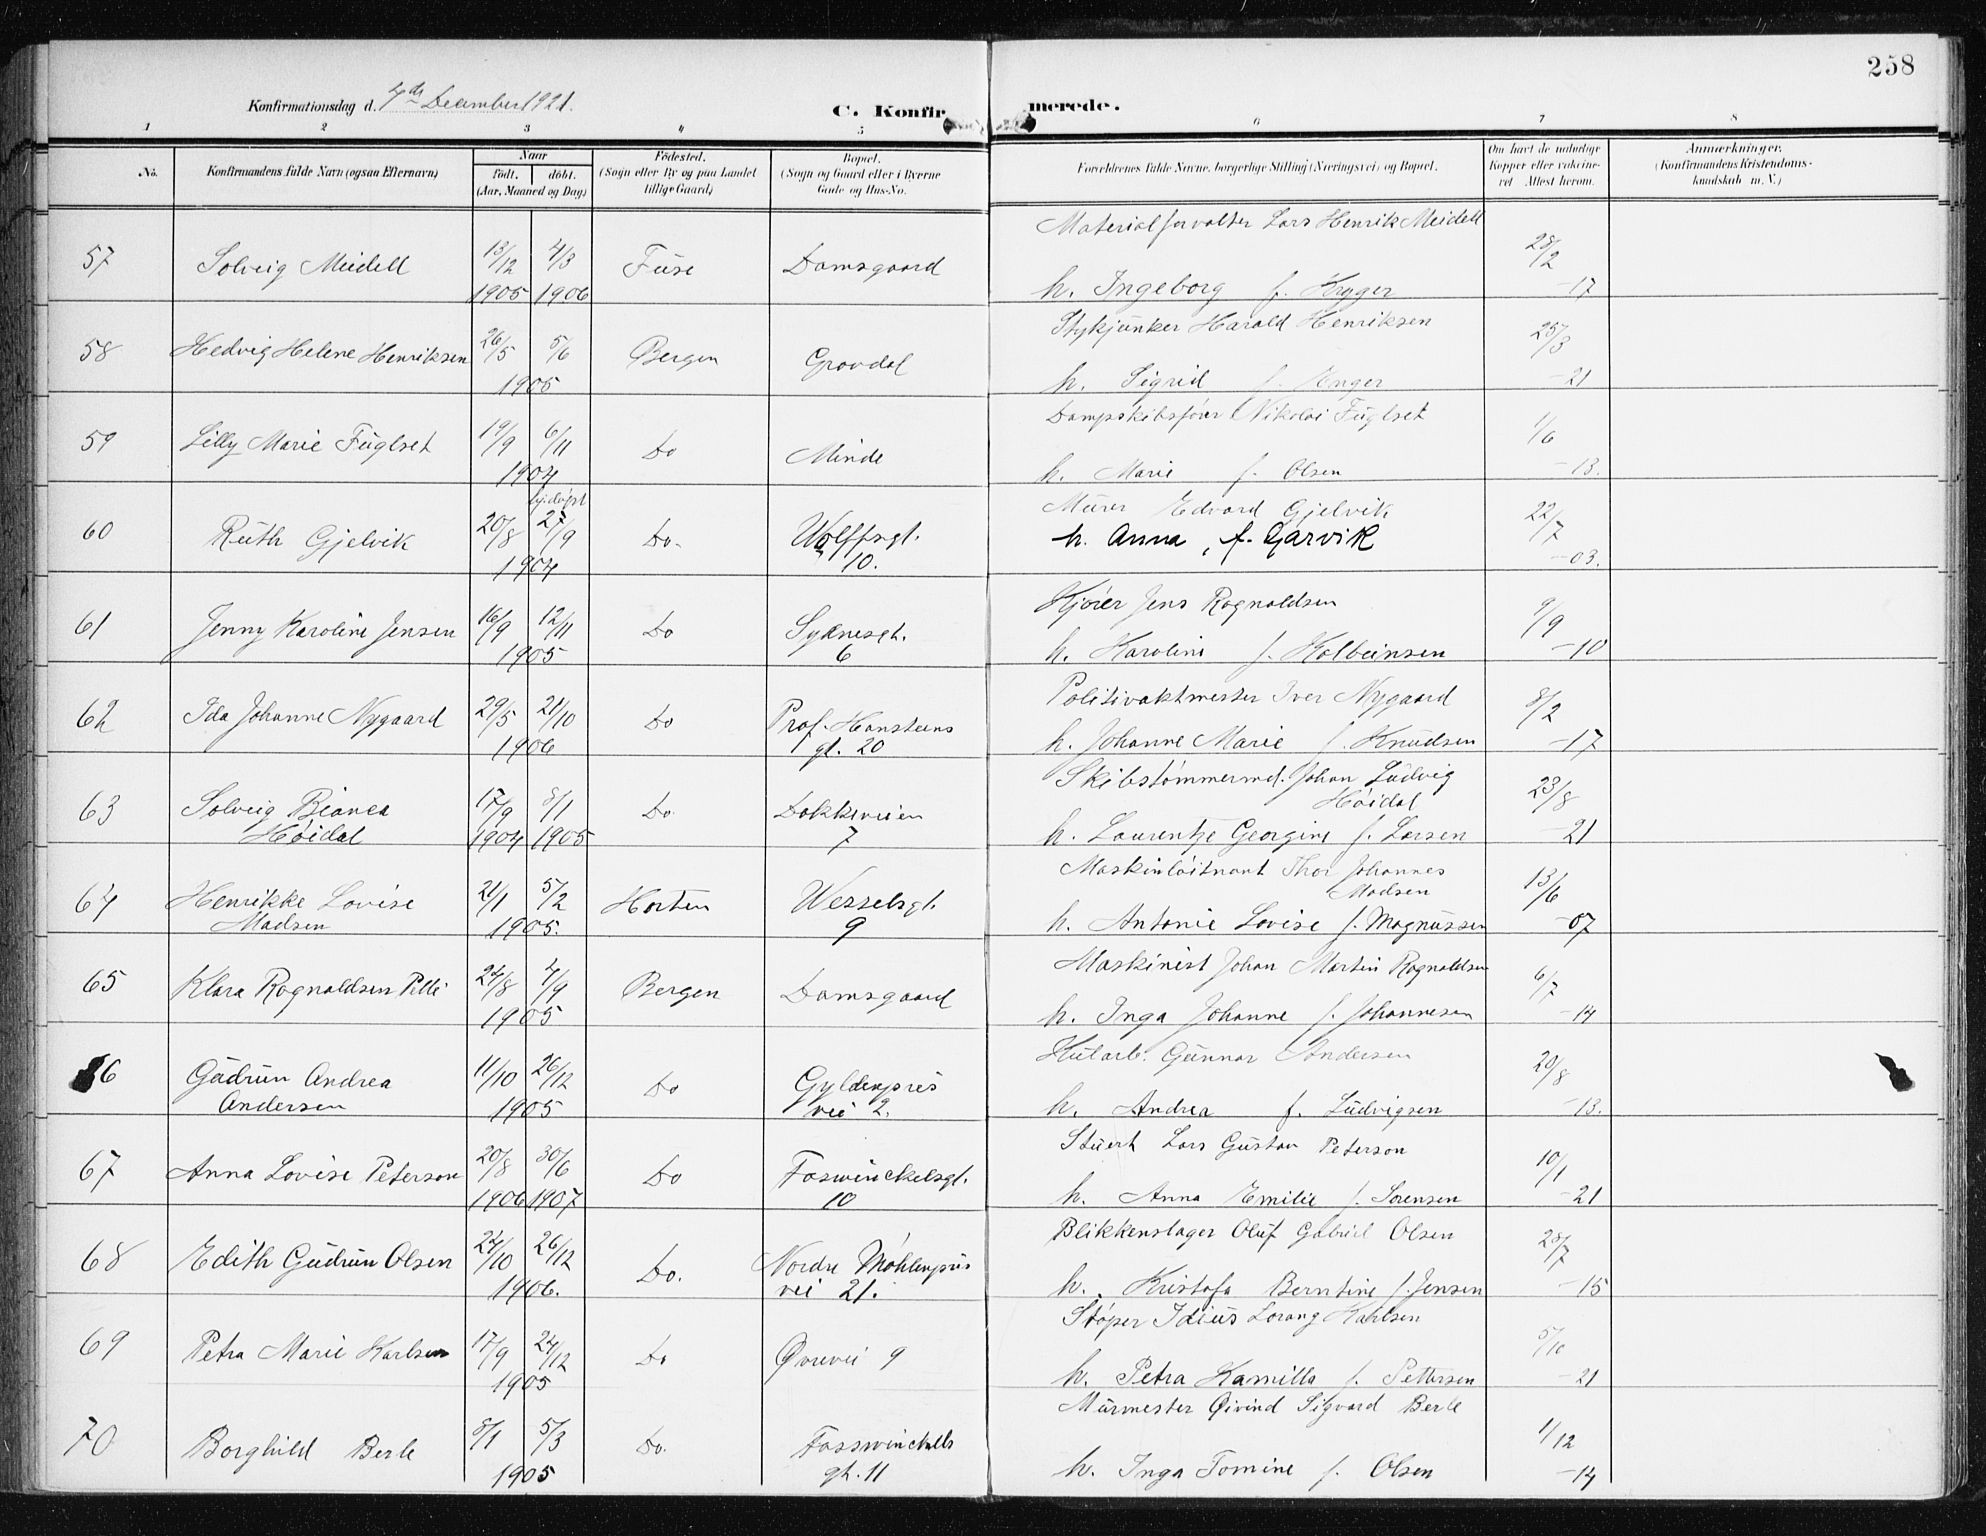 258
Konfirmationsdag d. 4de December 1921.
C. Konfirmerede.
1 2 3 4 5 6 7 8
No. Konfirmandens fulde Navn (ogsaa Efternavn) Naar født. døbt. (Aar, Maaned og Dag) Fødested. (Sogn eller By og paa Landet tillige Gaard) Bopæl. (Sogn og Gaard eller i Byerne Gade og Hus-No. Forældrenes fulde Navne, borgerlige Stilling (Næringsvei) og Bopæl. Om havt de naturlige Kopper eller vaccineret Attest herom. Anmærkninger. (Konfirmandens Kristendomskundskab m. V.)
57 Solveig Meidell 13/12 1905 4/3 1906 Fuse Damsgaard Materialforvalter Lars Henrik Meidell
h. Ingeborg f. Kryger 28/2 -17
58 Hedvig Helene Henriksen 26/5 5/6 1905 Bergen Grovdal Stykjunker Harald Henriksen
h. Sigrid f. Enger 25/3 -21
59 Lilly Marie Fuglset 19/9 6/11 1904 Do Minde Dampskibsfører Nikolai Fuglset
h. Marie f. Olsen 1/6 -13.
60 Ruth Gjelvik 20/8 hj.døpt 27/9 1904 Do. Wolffsgt. 10. Murer Edvard Gjelvik
h. Anna, f. Garvik 22/7 -03.
61 Jenny Karoline Jensen 16/9 12/11 1905 Do Sydnesgt. 6 Kjører Jens Ragnoldsen
h. Karoline f. Kolbeinsen 9/9 -10
62 Ida Johanne Nygaard 29/5 21/10 1906 Do Prof. Hansteens gt. 20 Politivaktmester Iver Nygaard
h. Johanne Marie f. Knudsen 8/2 -17
63 Solveig Bianca Høidal 17/9 1904 8/1 1905 Do. Dokkeveien 7 Skibstømmermd. Johan Ludvig Høidal
h. Laurentze Georgine f. Larsen 23/8 -21
64 Henrikke Lovise Madsen 21/1 5/2 1905. Horten Wesselsgt. 9 Maskinløitnant Thor Johannes Madsen
h. Antonie Lovise f. Magnussen 13/6 -07
65 Klara Ragnoldsen Pelle 24/8 4/9 1905 Bergen Damsgaard Maskinist Johan Martin Ragnoldsen
h. Inga Johanne f. Johannesen 6/7 -14
66 Gudrun Andrea Andersen 11/10 26/12 1905 Do Gyldenpris vei 2. Hutarb. Gunnar Andersen
h. Andrea f. Ludvigsen 20/8 -13.
67 Anna Lovise Peterson 20/8 1906 30/6 1907 Do Foswinckelsgt. 10 Stuert Lars Gustav Peterson
h. Anna Emilie f. Sørensen 10/1 -21
68 Edith Gudrun Olsen 24/10 26/12 1906. Do. Nordre Møhlenpris vei 21. Blikkenslager Oluf Gabriel Olsen
h. Kristofa Berntine f. Jensen 28/7 -15
69 Petra Marie Karlsen 17/9 24/12 1905 Do Øvrevei 9 Støper Idius Lorang Karlsen
h. Petra Kamilla f. Pettersen 5/10 -21
70 Borghild Berle 8/1 5/3 1905 Do. Fosswinckells gt. 11 Murmester Øivind Sigvard Berle
h. Inga Tomine f. Olsen 1/12 -14